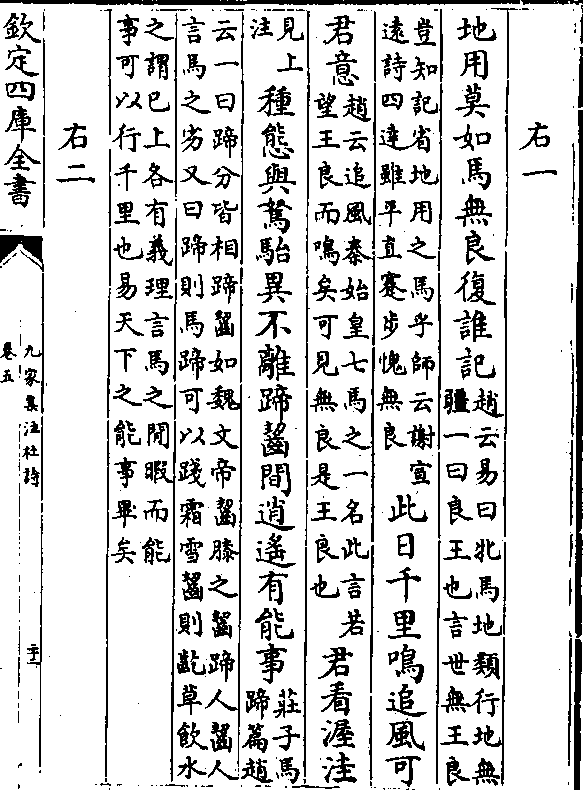 右一
地用莫如馬無良復誰記趙云易曰牝馬地類行地無
疆一曰良王也言世無王良
豈知記省地用之馬乎師云謝宣
遠詩四達雖平直蹇步愧無良此日千里鳴追風可
君意趙云追風秦始皇七馬之一名此言若
望王良而鳴矣可見無良是王良也君看渥洼
見上
注種態與駑駘異不離蹄齧間逍遙有能事莊子馬
蹄篇趙
云一曰蹄分皆相蹄齧如魏文帝齧膝之齧蹄人齧人
言馬之劣又曰蹄則馬蹄可以踐霜雪齧則齕草飲水
之謂已上各有義理言馬之閒暇而能
事可以行千里也易天下之能事畢矣
右二
欽定四庫全書
九家集注杜詩
卷五